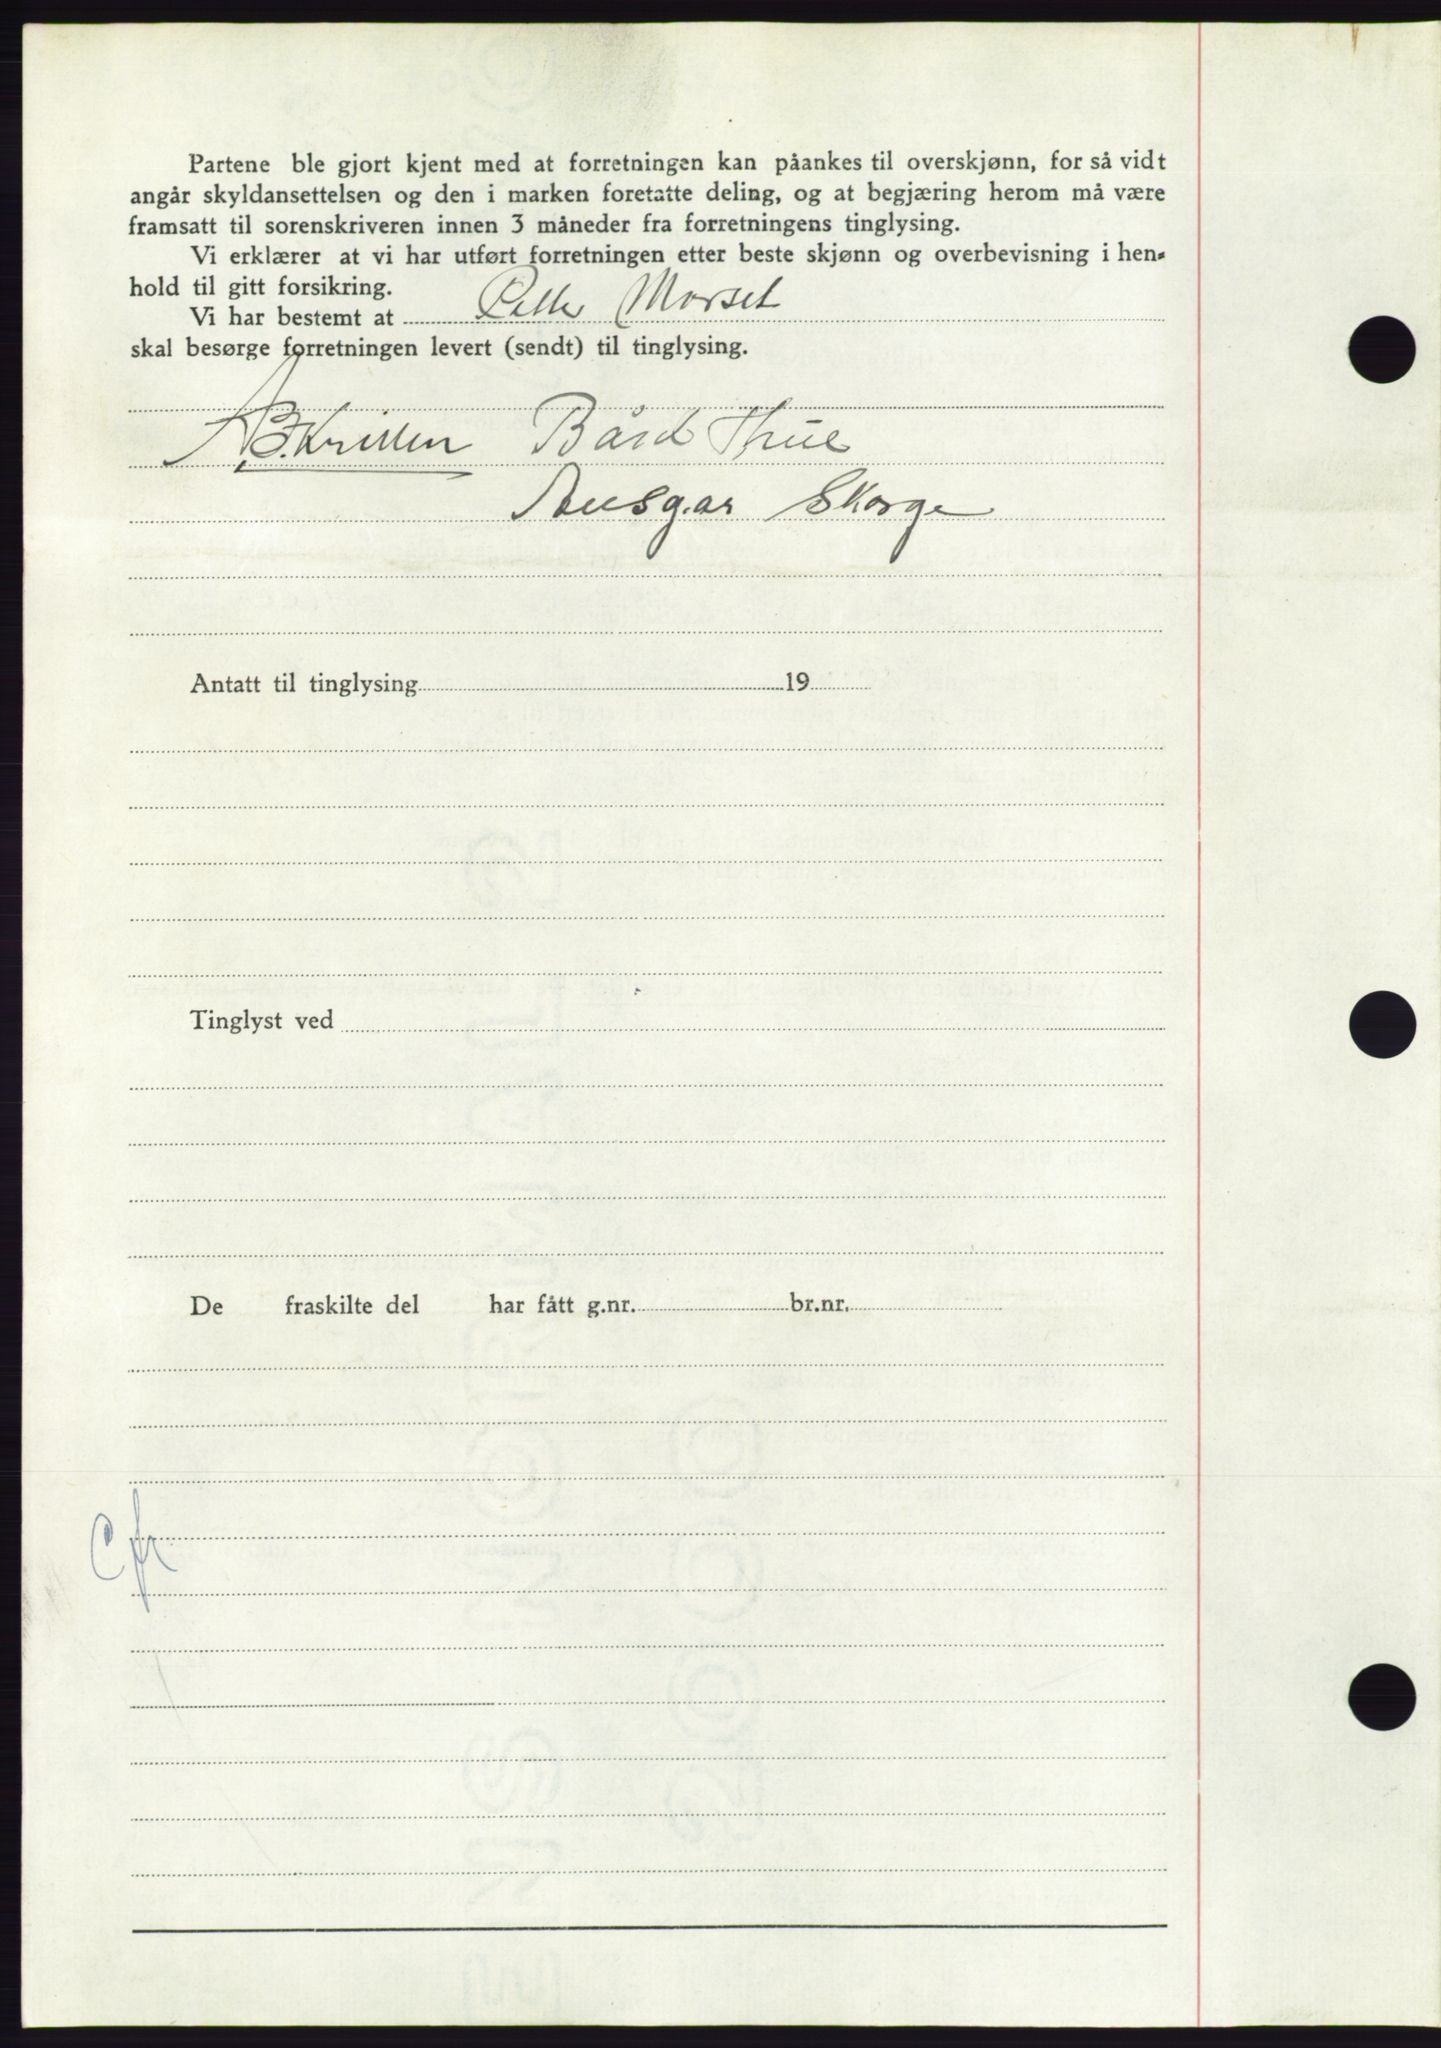 Partene ble gjort kjent med at forretningen kan påankes til overskjønn, for så vidt
angår skyldansettelsen og den i marken foretatte deling, og at begjæring herom må være
framsatt til sorenskriveren innen 3 måneder fra forretningens tinglysing.
Vi erklærer at vi har utført forretningen etter beste skjønn og overbevisning i hen-
hold til gitt forsikring.
Vi har bestemt at Petter Morset
skal besørge forretningen levert (sendt) til tinglysing.
Bård Thue
Ansgar Skorge
Antatt til tinglysing 19
Tinglyst ved
De fraskilte del har fått g.nr. br.nr.
Cfr